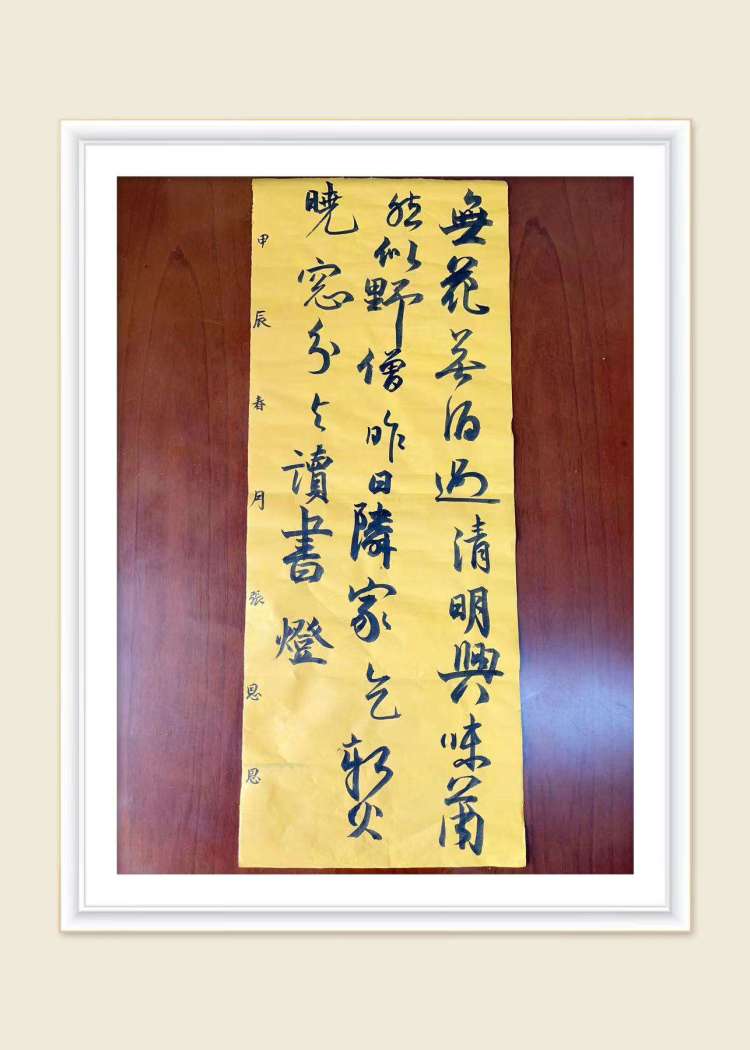 無花無酒過清明興味蕭
然似野僧昨日隣家乞新火
曉窓分与讀書燈
甲辰春月張恩恩